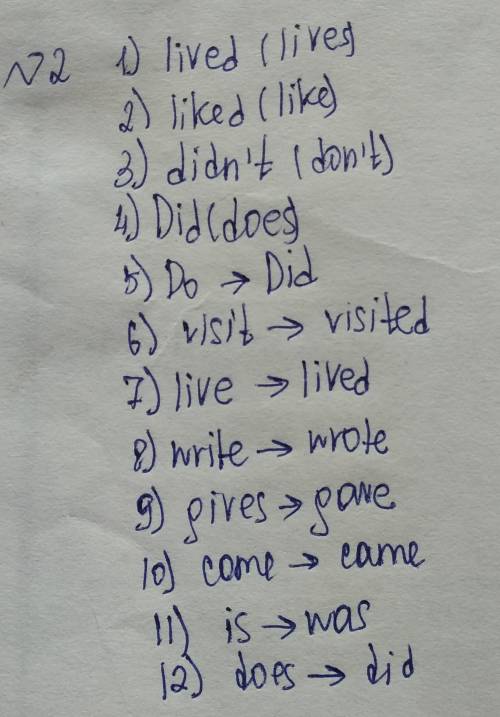 №2 1) lived (lives)
2) liked (like)
3) didn't (don't)
4) Did (does)
5) Do → Did
6) visit → visited
7) live → lived
8) write → wrote
9) gives → gave
10) come → came
11) is → was
12) does → did